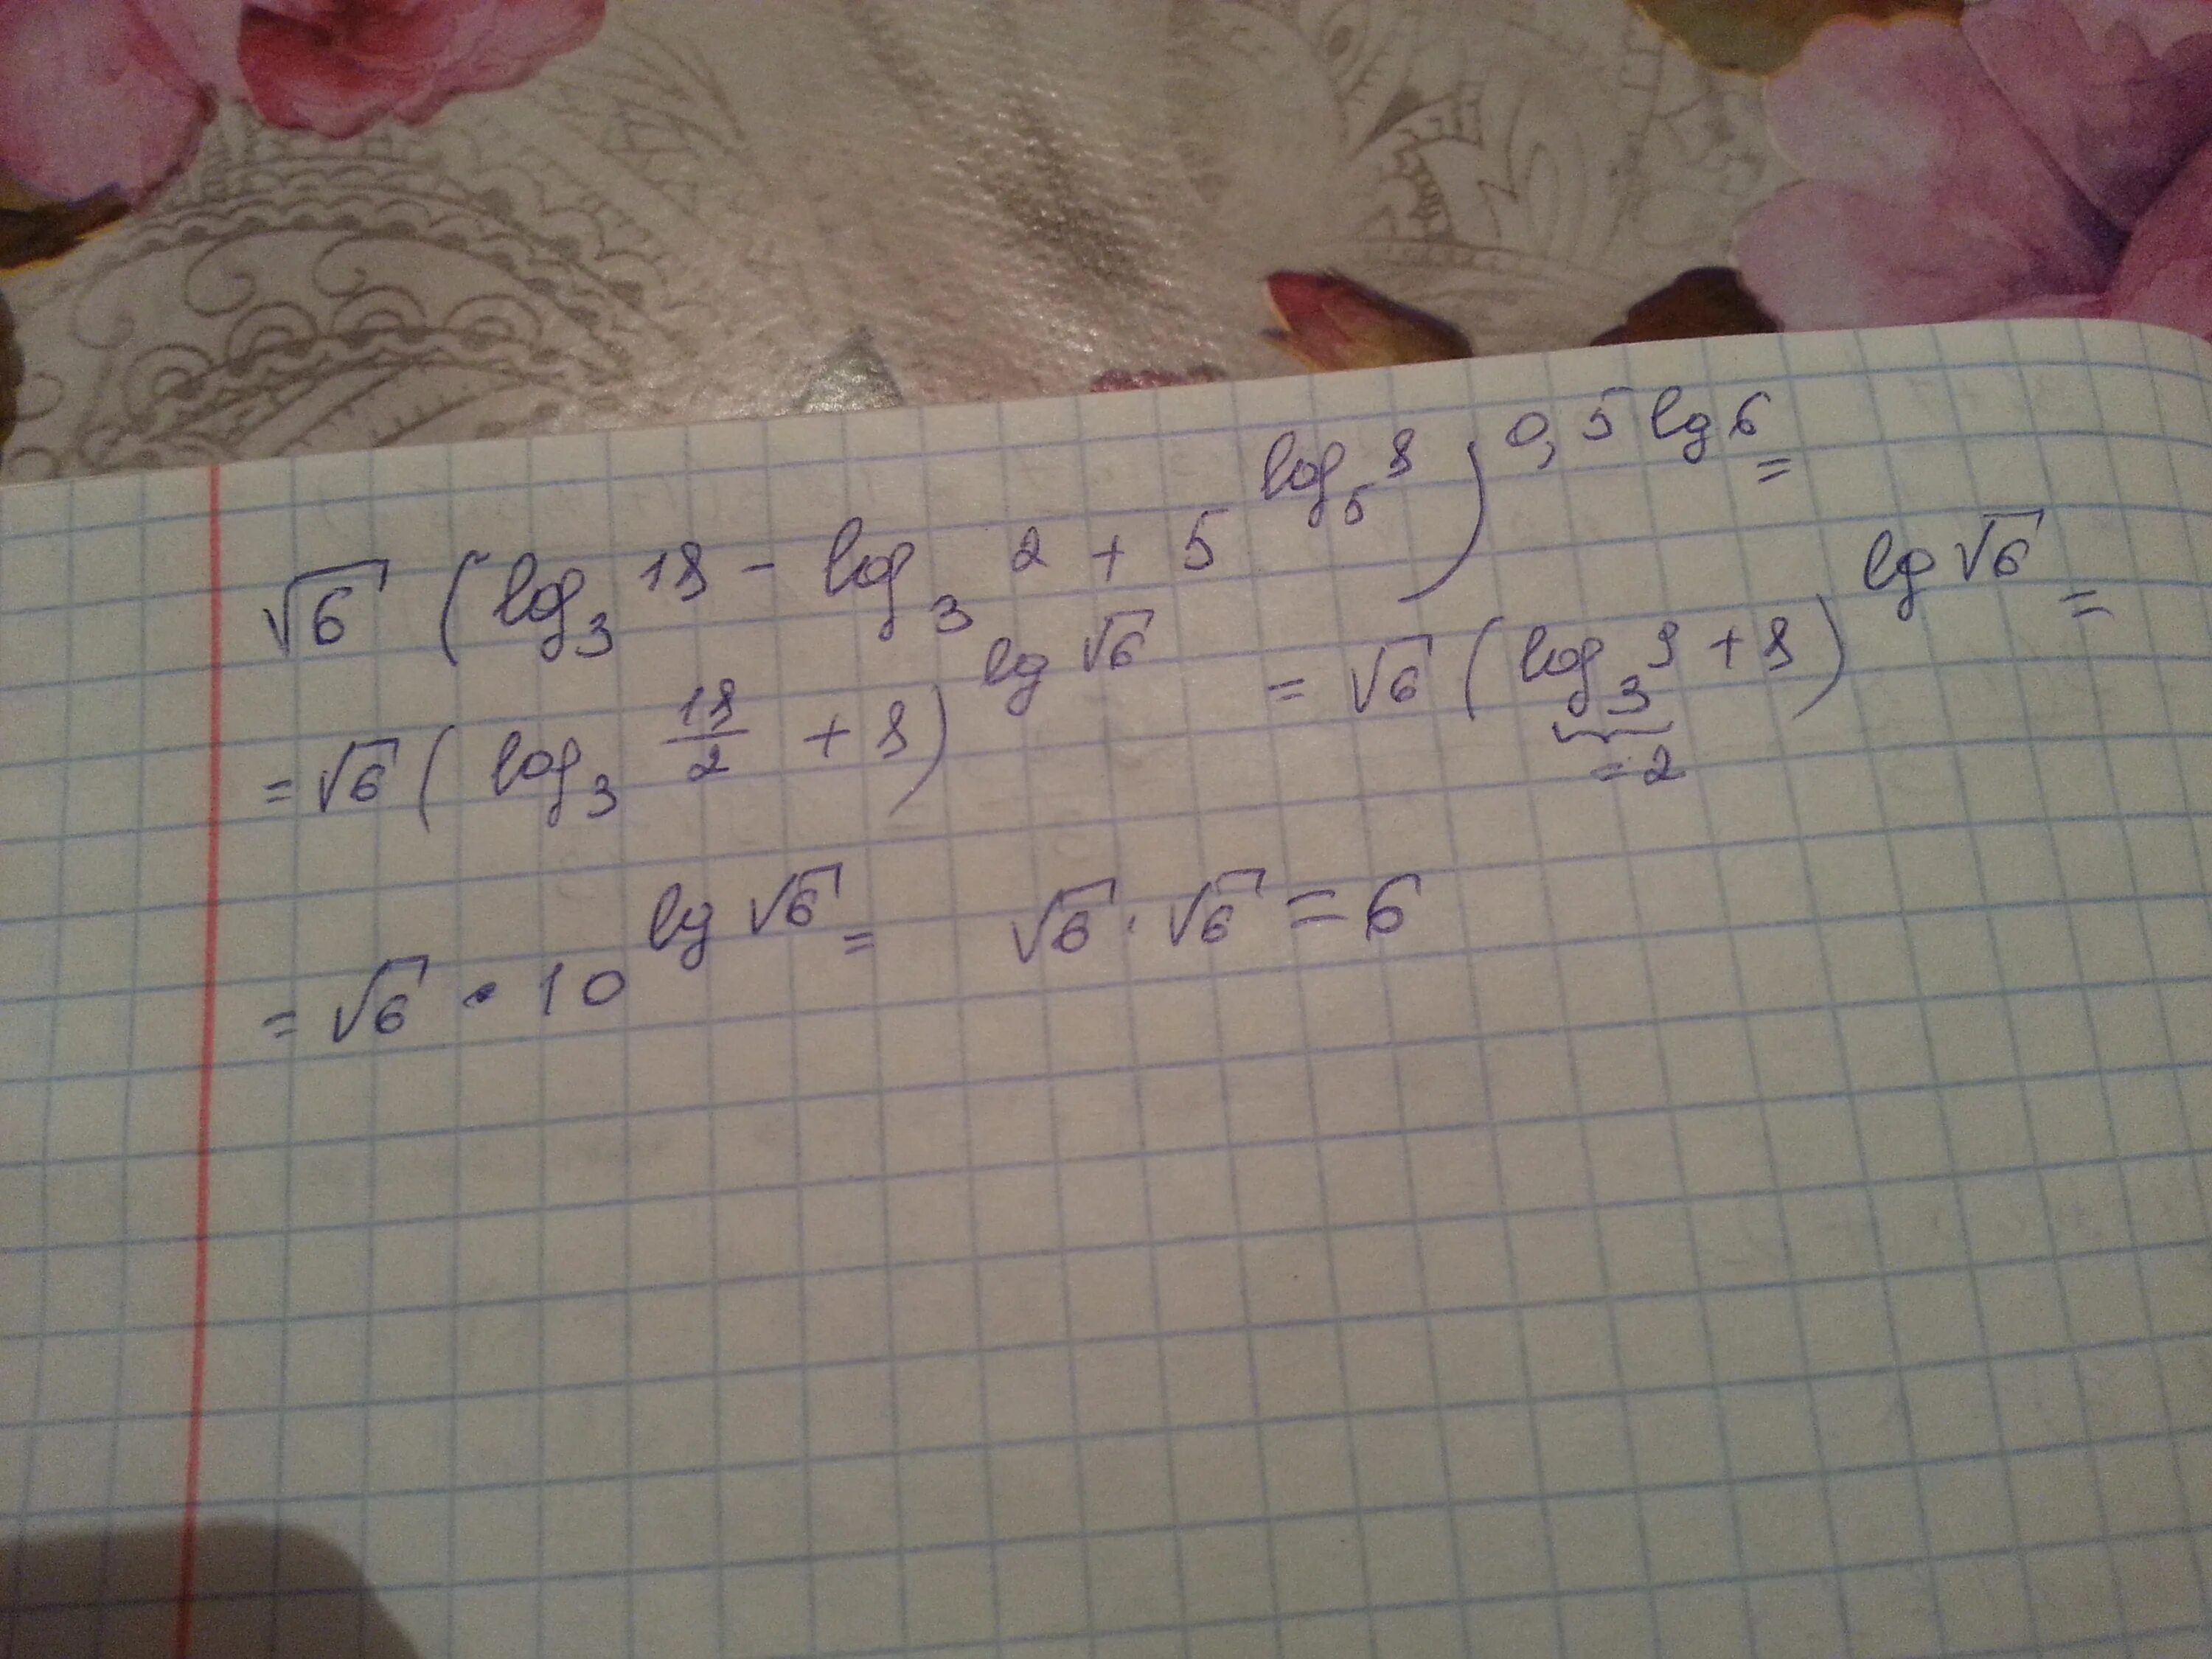 √6 (log₃ 18 - log₃ 2 + 5^(log₅ 8))^(0,5 lg 6) =
= √6 (log₃ 18/2 + 8)^(lg √6) = √6 (log₃ 9 + 8)^(lg √6) =
= 2
= √6 · 10^(lg √6) = √6 · √6 = 6